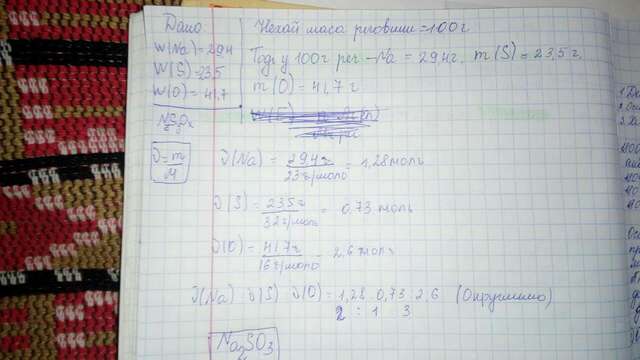 Дано:
W(Na) = 29,4
W(S) = 23,5
W(O) = 41,7
ν = m/M
Нехай маса речовини = 100г
Тоді у 100г реч – Na = 29,4г, m(S) = 23,5г,
m(O) = 41,7г
ν(Na) = 29,4г / 23г/моль = 1,28моль
ν(S) = 23,5г / 32г/моль = 0,73 моль
ν(O) = 41,7г / 16г/моль = 2,6 моль
ν(Na) : ν(S) : ν(O) = 1,28 : 0,73 : 2,6 (Округлимо)
2 : 1 3
Na2SO3